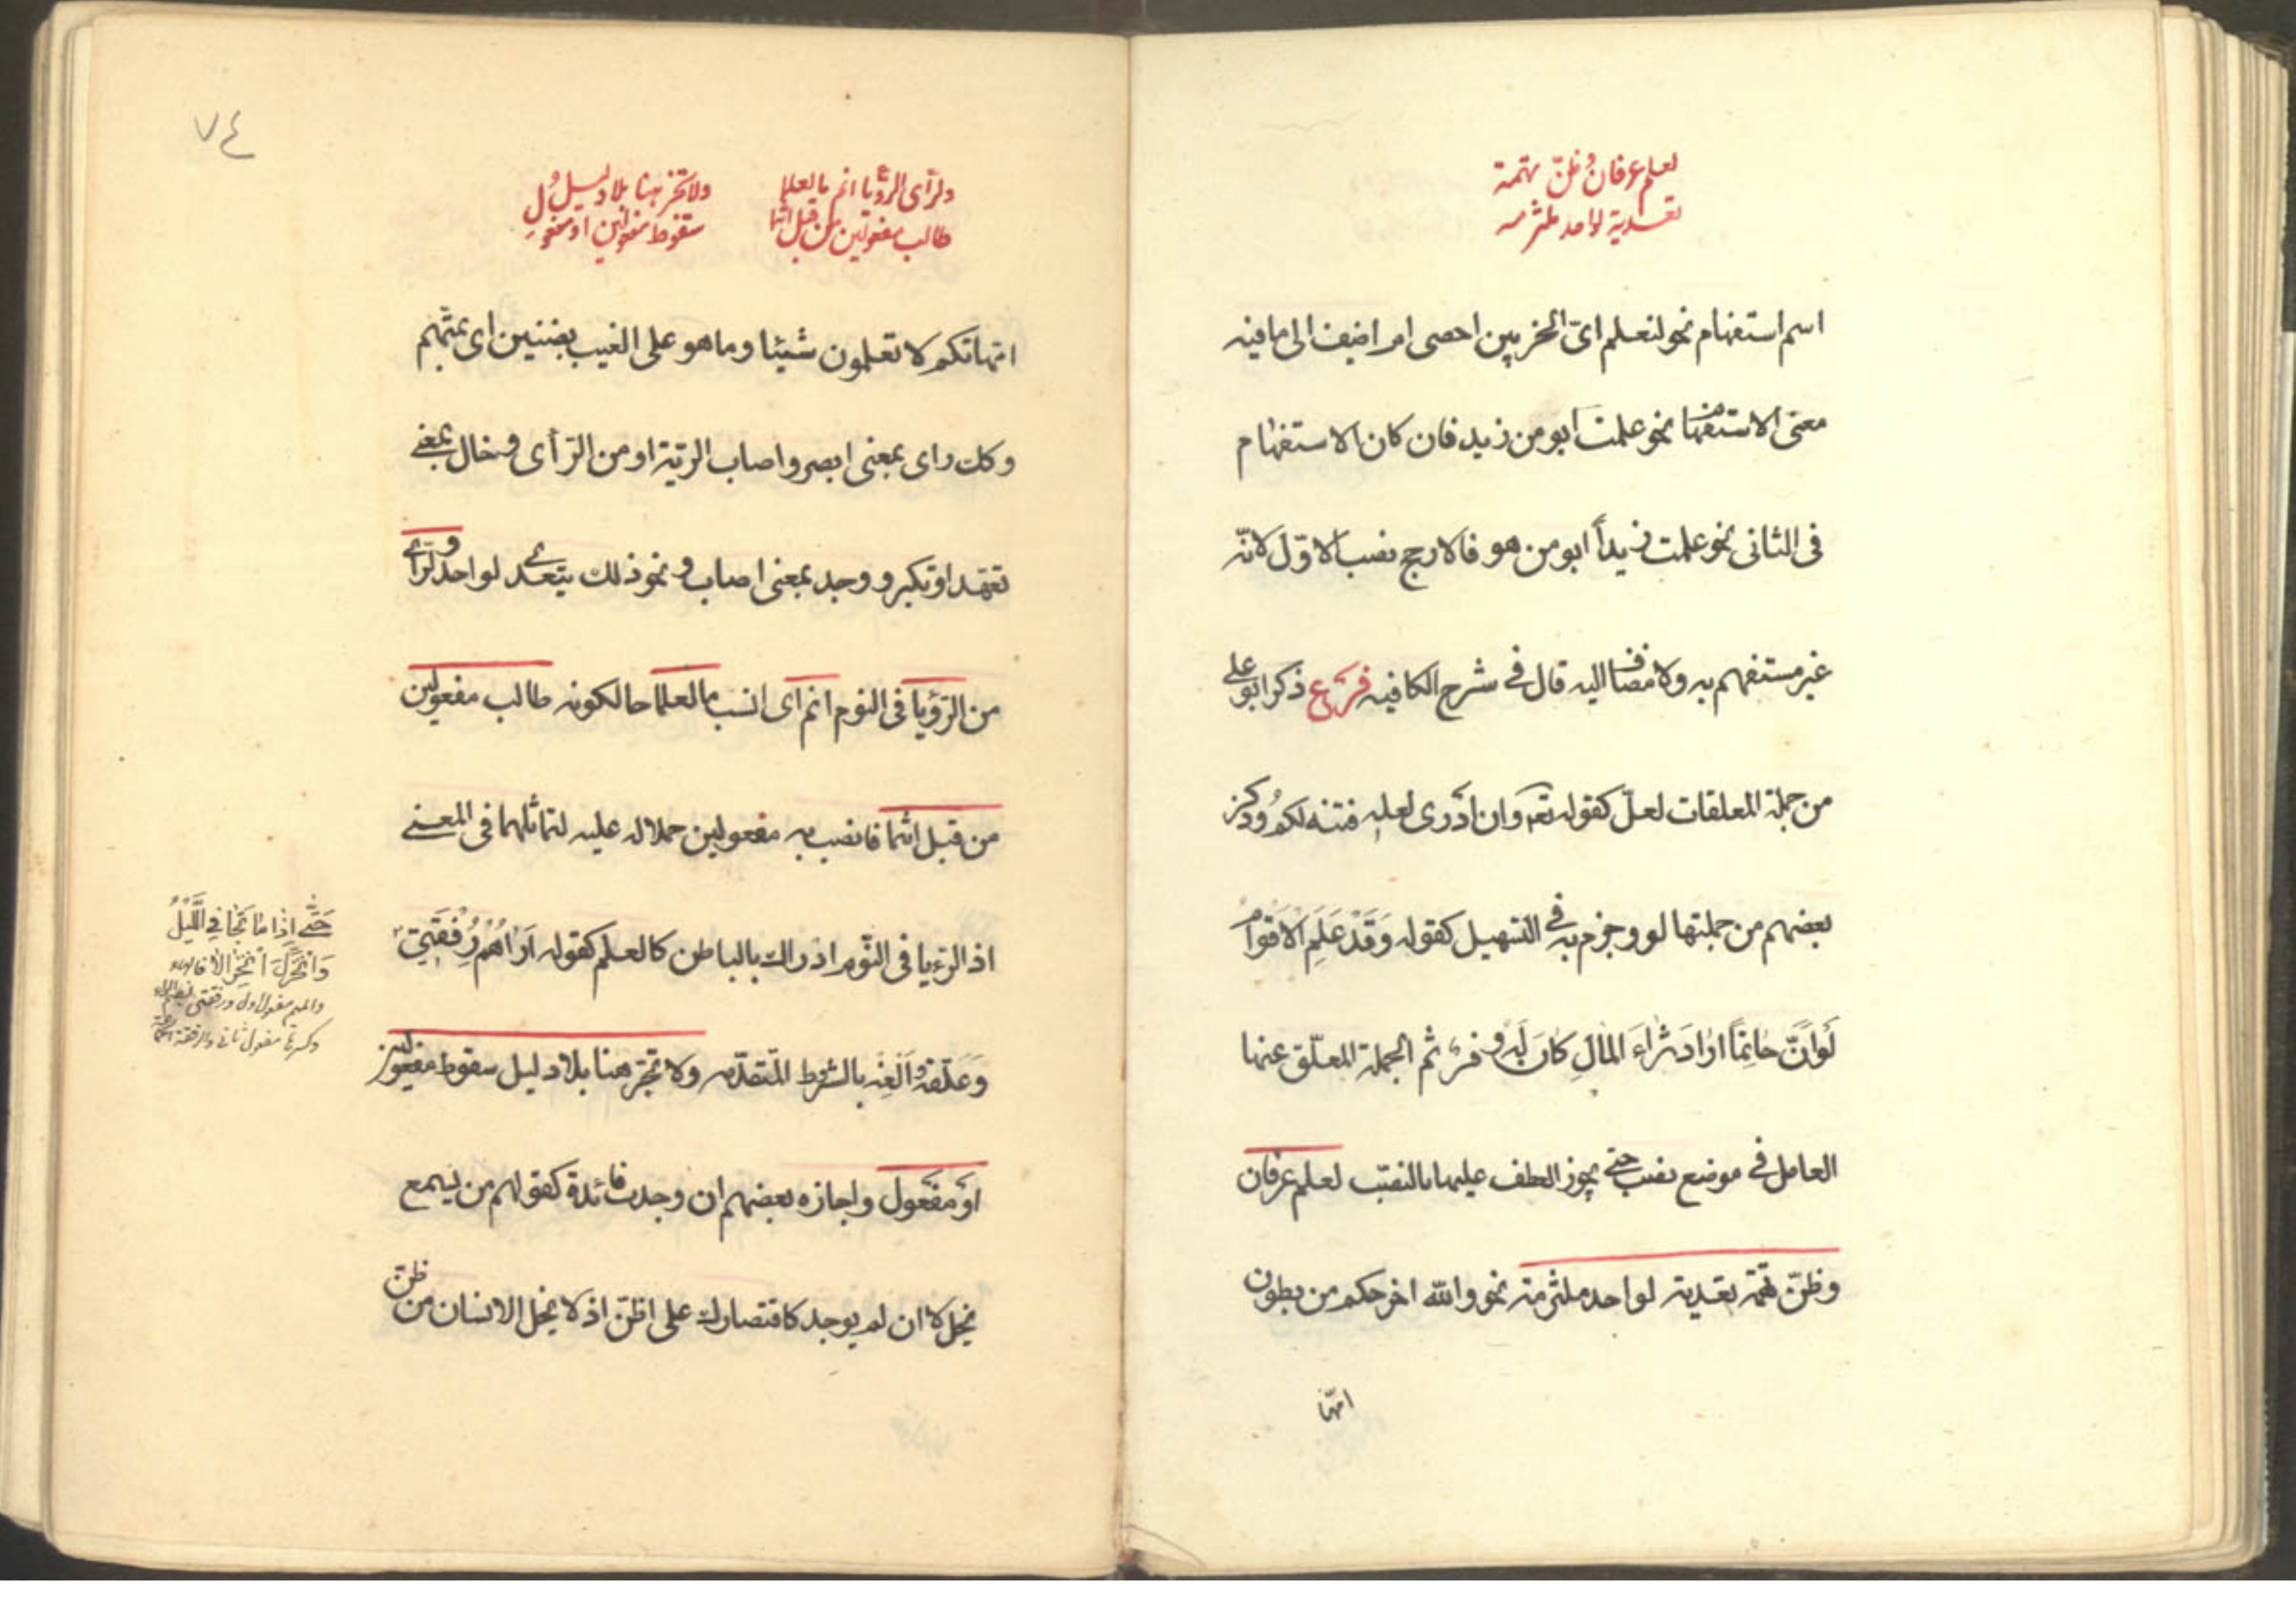 لعلم عرفان وظنّ تهمة
تعدية لواحد ملتزمه
اسم استفهام نحو لنعلم اىّ الحزبين احصى ام اضيف الى ما فيه
معنى الاستفهام نحو علمت ابو من زيد فان كان الاستفهام
فى الثانى نحو علمت زيداً ابو من هو فالارجح نصب الاوّل لانّه
غير مستفهم به ولا مضاف اليه قال فى شرح الكافيه فرع ذكر ابو على
من جملة المعلقات لعلّ كقوله تعه وان ادرى لعله فتنه لكم وذكر
بعضهم من جملتها لو وجزم به فى التسهيل كقوله وَقَدْ عَلِمَ الاَقْوامُ
لَوْ اَنَّ حاتِماً اَرادَ ثَراءَ المالِ كانَ لَهُ وفر ثم الجملة المعلّق عنها
العامل فى موضع نصب حتى يجوز العطف عليها بالنصب لعلم عرفان
وظنّ تهمة تعدية لواحد ملتزمة نحو والله اخرجكم من بطون
امها
٧٤
ولرأى الرؤيا انم ما لعلما
طالب مفعولين من قبل انتما
ولا تجز هنا بلا دليل
سقوط مفعولين او مفعول
امهاتكم لا تعلمون شيئا وما هو على الغيب بضنين اى بمتّهم
وكك راى بمعنى ابصر واصاب الرية او من الرّأى وخال بمعنى
تعهد او تكبر و وجد بمعنى اصاب و نحو ذلك يتعدى لواحد ولرأى
من الرّؤيا فى النوم انم اى انسب ما لعلما حالكونه طالب مفعولين
من قبل انتما فانصب به مفعولين حملا له عليه لتماثلهما فى المعنى
اذ الرؤيا فى النّوم ادراك بالباطن كالعلم كقوله اَراهُمْ رُفْقَتِى
وَعلّقه وَاَلْغِه بالشروط المتقدّمه ولا تجز هنا بلا دليل سقوط مفعولين
او مفعول واجازه بعضهم ان وجدت فائدة كقولهم من يسمع
يخل لا ان لم يوجد كاقتصارك على اظنّ اذ لا يخل الانسان من ظنّ
حَتّى اِذا ما تَجافى اللَّيْلُ
وَانْخَزَلَ انْخِزالاً
والميم مفعول اول ورفقتى
مفعول ثانى والرفقة